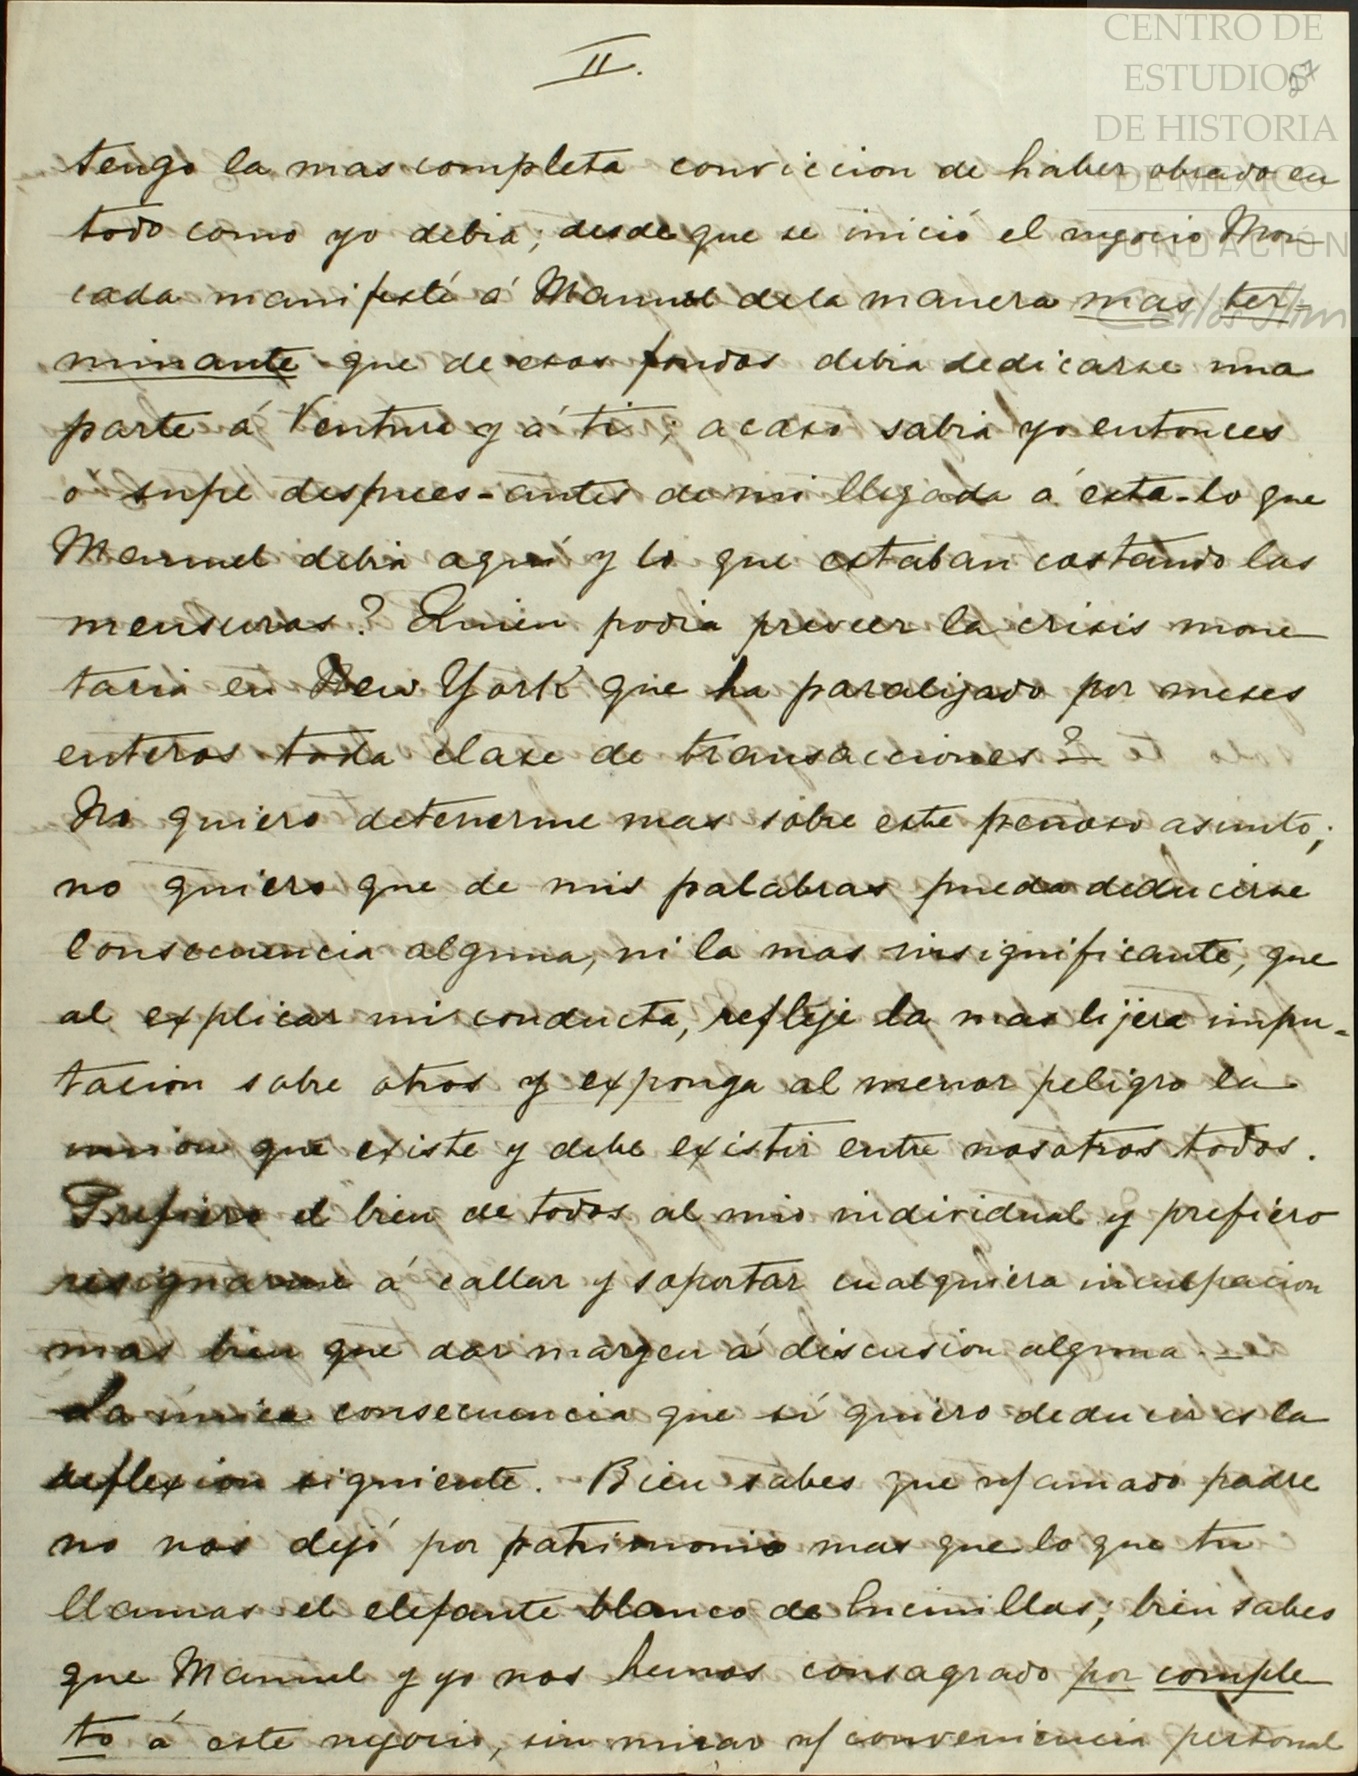 II.
CENTRO DE
ESTUDIOS
DE HISTORIA
DE MEXICO
FUNDACIÓN
Carlos Slim
27
tengo la mas completa conviccion de haber obrado en
todo como yo debia; desde que se inició el negocio Mon-
cada manifesté á Manuel de la manera mas ter-
minante que de esos fondos debia dedicarse una
parte á Ventura y á ti; acaso sabia yo entonces
o supe despues - antes de mi llegada á esta - lo que
Manuel debia aquí y lo que estaban costando las
mensuras? Quien podia preveer la crisis mone-
taria en New York que ha paralizado por meses
enteros toda clase de transacciones? -
No quiero detenerme mas sobre este penoso asunto;
no quiero que de mis palabras pueda deducirse
consecuencia alguna, ni la mas insignificante, que
al explicar mi conducta, refleje la mas lijera impu-
tacion sobre otros y exponga al menor peligro la
union que existe y debe existir entre nosotros todos.
Prefiero el bien de todos al mio individual y prefiero
resignarme á callar y soportar cualquiera inculpacion
mas bien que dar margen á discusion alguna. -
La única consecuencia que sí quiero deducir es la
reflexion siguiente. Bien sabes que n/ amado padre
no nos dejó por patrimonio mas que lo que tu
llamas el elefante blanco de Encinillas; bien sabes
que Manuel y yo nos hemos consagrado por comple-
to á este negocio, sin mirar n/ conveniencia personal